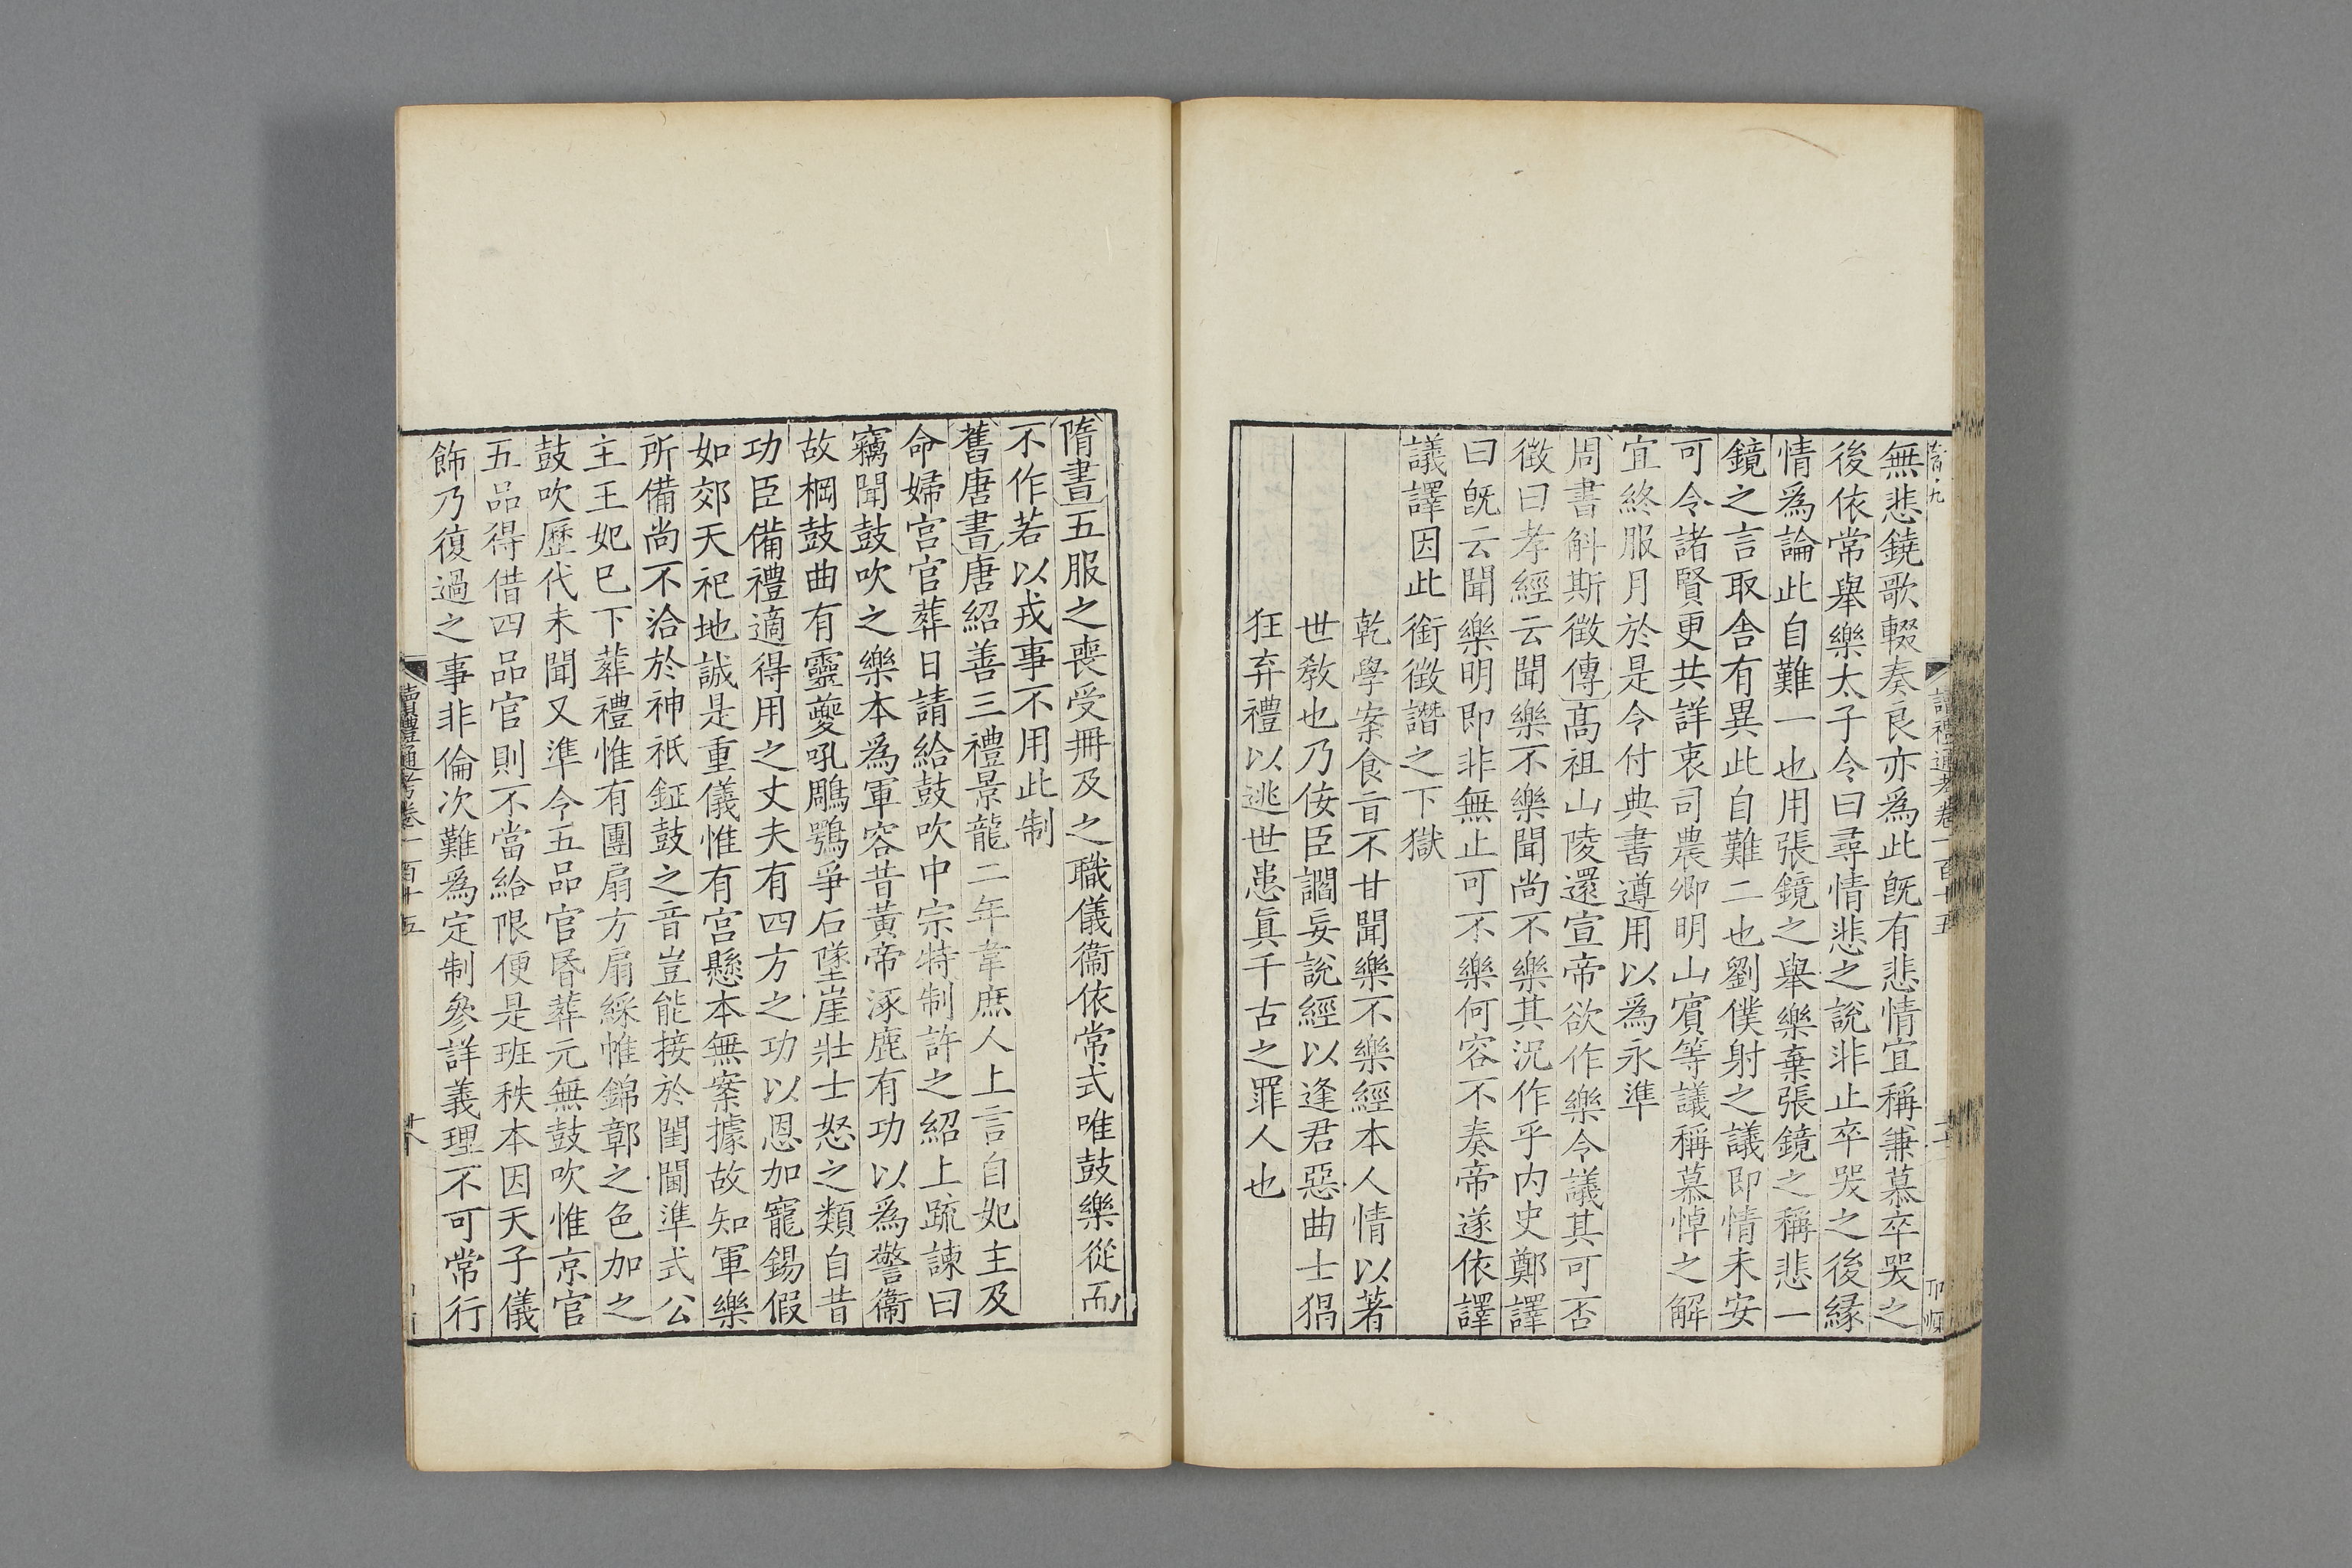 無悲鐃歌輟奏良亦爲此旣有悲情宜稱兼慕卒哭之
後依常舉樂太子令曰尋情悲之說非止卒哭之後緣
情爲論此自難一也用張鏡之舉樂棄張鏡之稱悲一
鏡之言取舍有異此自難二也劉僕射之議即情未安
可令諸賢更共詳衷司農卿明山賓等議稱慕悼之解
宜終服月於是令付典書遵用以爲永準
周書斛斯徵傳高祖山陵還宣帝欲作樂令議其可否
徵曰孝經云聞樂不樂聞尚不樂其況作乎内史鄭譯
曰旣云聞樂明即非無止可不樂何容不奏帝遂依譯
議譯因此銜徵譖之下獄
乾學案食旨不甘聞樂不樂經本人情以著
世教也乃佞臣讇妄說經以逢君惡曲士猖
狂弃禮以逃世患眞千古之罪人也
隋書五服之喪受冊及之職儀衞依常式唯鼓樂從而
不作若以戎事不用此制
舊唐書唐紹善三禮景龍二年韋庶人上言自妃主及
命婦宫官葬日請給鼓吹中宗特制許之紹上疏諫曰
竊聞鼓吹之樂本爲軍容昔黃帝涿鹿有功以爲警衞
故棡鼓曲有靈夔吼鵰鶚爭石墜崖壯士怒之類自昔
功臣備禮適得用之丈夫有四方之功以恩加寵錫假
如郊天祀地誠是重儀惟有宫懸本無案據故知軍樂
所備尚不洽於神祇鉦鼓之音豈能接於閨閫準式公
主王妃已下葬禮惟有團扇方扇綵帷錦鄣之色加之
鼓吹歷代未聞又準令五品官昬葬元無鼓吹惟京官
五品得借四品官則不當給限便是班秩本因天子儀
飾乃復過之事非倫次難爲定制參詳義理不可常行
讀禮通考卷一百十五